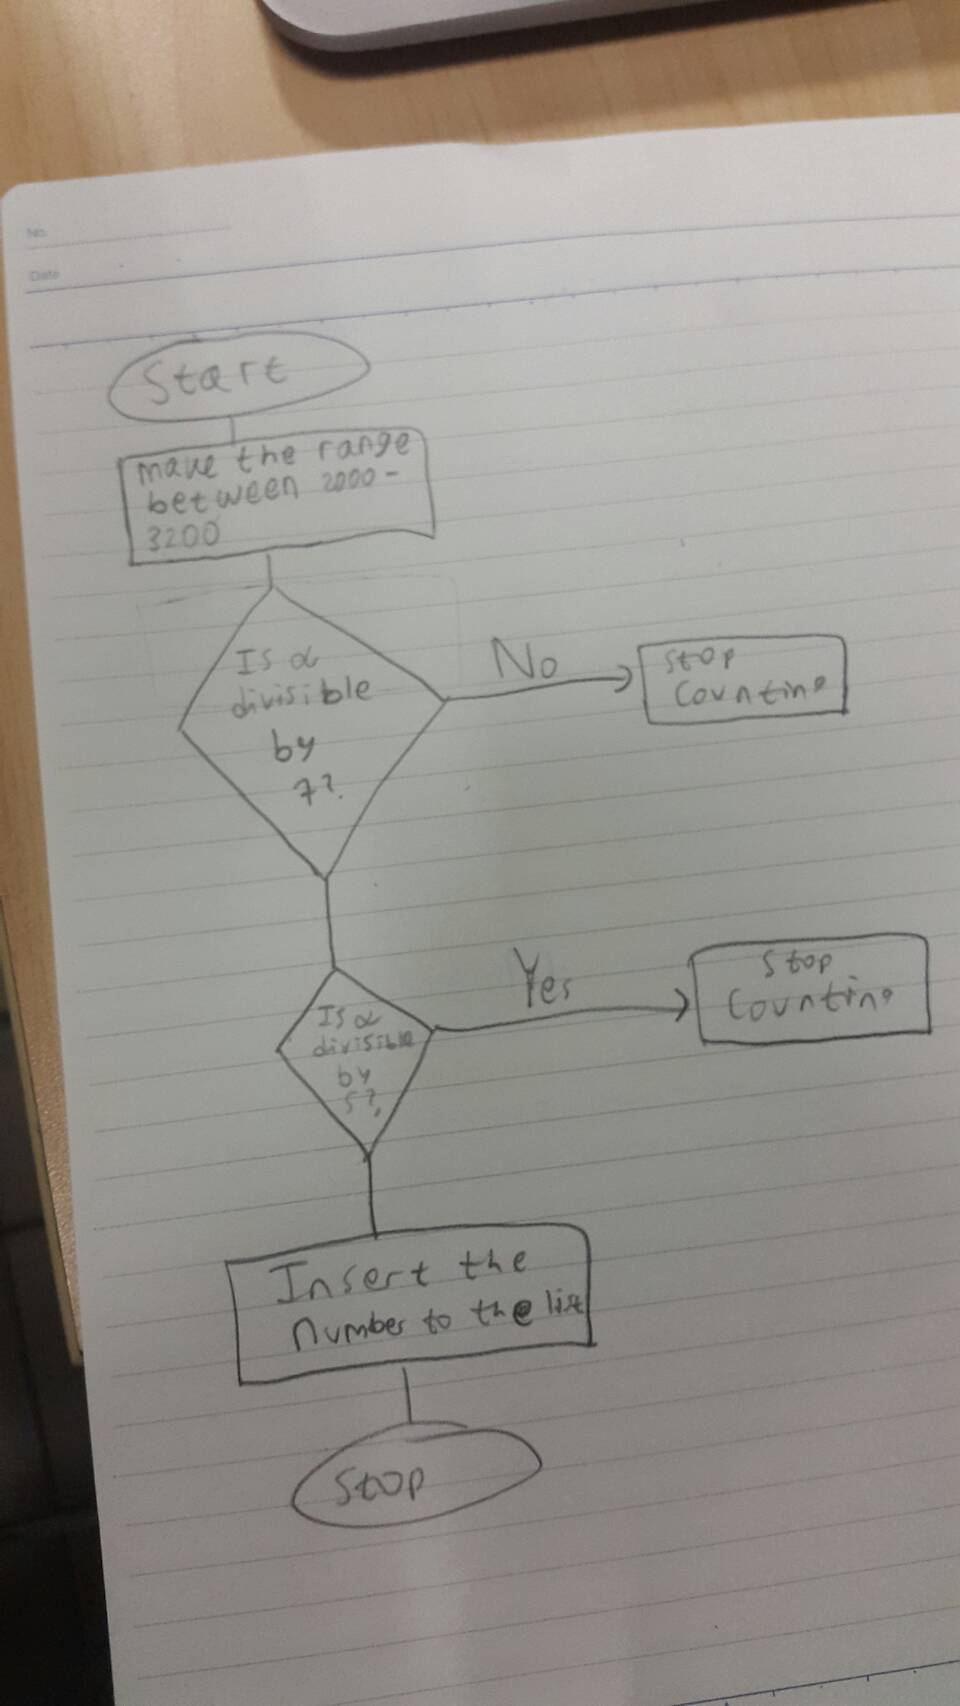 No.
Date
Start
make the range
between 2000 -
3200
Is α
divisible
by
7?
No
Stop
Counting
Is α
divisible
by
5?
Yes
Stop
Counting
Insert the
number to the list
Stop